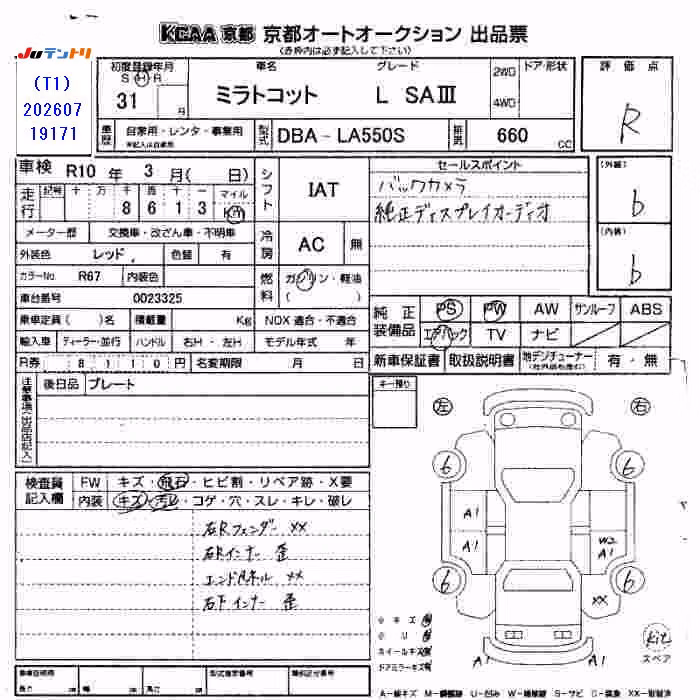 KCAA 京都 京都オートオークション 出品票
(赤枠内は必ず記入して下さい)
JUテントリ
(T1)
202607
19171
初度登録年月
S H R
31 月
車名 グレード
ミラトコット L SAⅢ
2WD
4WD
ドア・形状
評価点
R
車歴 自家用・レンタ・事業用
型式 DBA - LA550S
660 CC
車検 R10 年 3 月( 日)
走行 記号 十 万 千 百 十 一 マイル
8 6 1 3 Km
シフト IAT
セールスポイント
バックカメラ
純正ディスプレイオーディオ
(外装)
b
(内装)
b
メーター歴 交換車・改ざん車・不明車
外装色 レッド 色替 有
冷房 AC 無
カラーNo. R67 内装色
燃料 ガソリン・軽油
( )
車台番号 0023325
乗車定員( )名 積載量 Kg NOX 適合・不適合
純正装備品 PS PW AW サンルーフ ABS
エアバック TV ナビ
輸入車 ディーラー・並行 ハンドル 右H・左H モデル年式 年
R券 8110円 名変期限 月 日
新車保証書 取扱説明書 地デジチューナー 有・無
注意事項(出品店記入)
後日品 プレート
キー預り
左 右
検査員記入欄
FW キズ・飛石・ヒビ割・リペア跡・X要
内装 キズ・汚レ・コゲ・穴・スレ・キレ・破レ
右Rフェンダー XX
右Rインナー 歪
エンドパネル XX
右F インナー 歪
6 6
A1
A1 W2
A1
6 6
XX
小キズ
小U
ホイールキズ
ドアミラーキズ
A1 A1
Kit
スペア
車検証明用
長さ cm 幅 cm 高さ cm
型式指定番号 類別区分番号